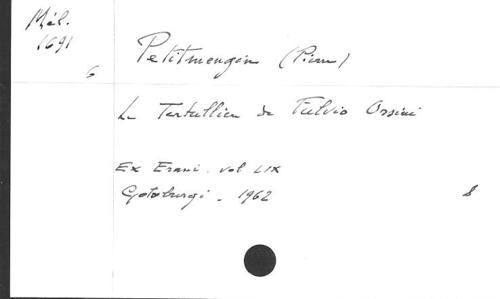 Mél.
1691
6
Petitmengin (Pierre)
Le Tertullien de Fulvio Orsini
Ex Erani. vol LIX
Gotoburgi - 1962
8